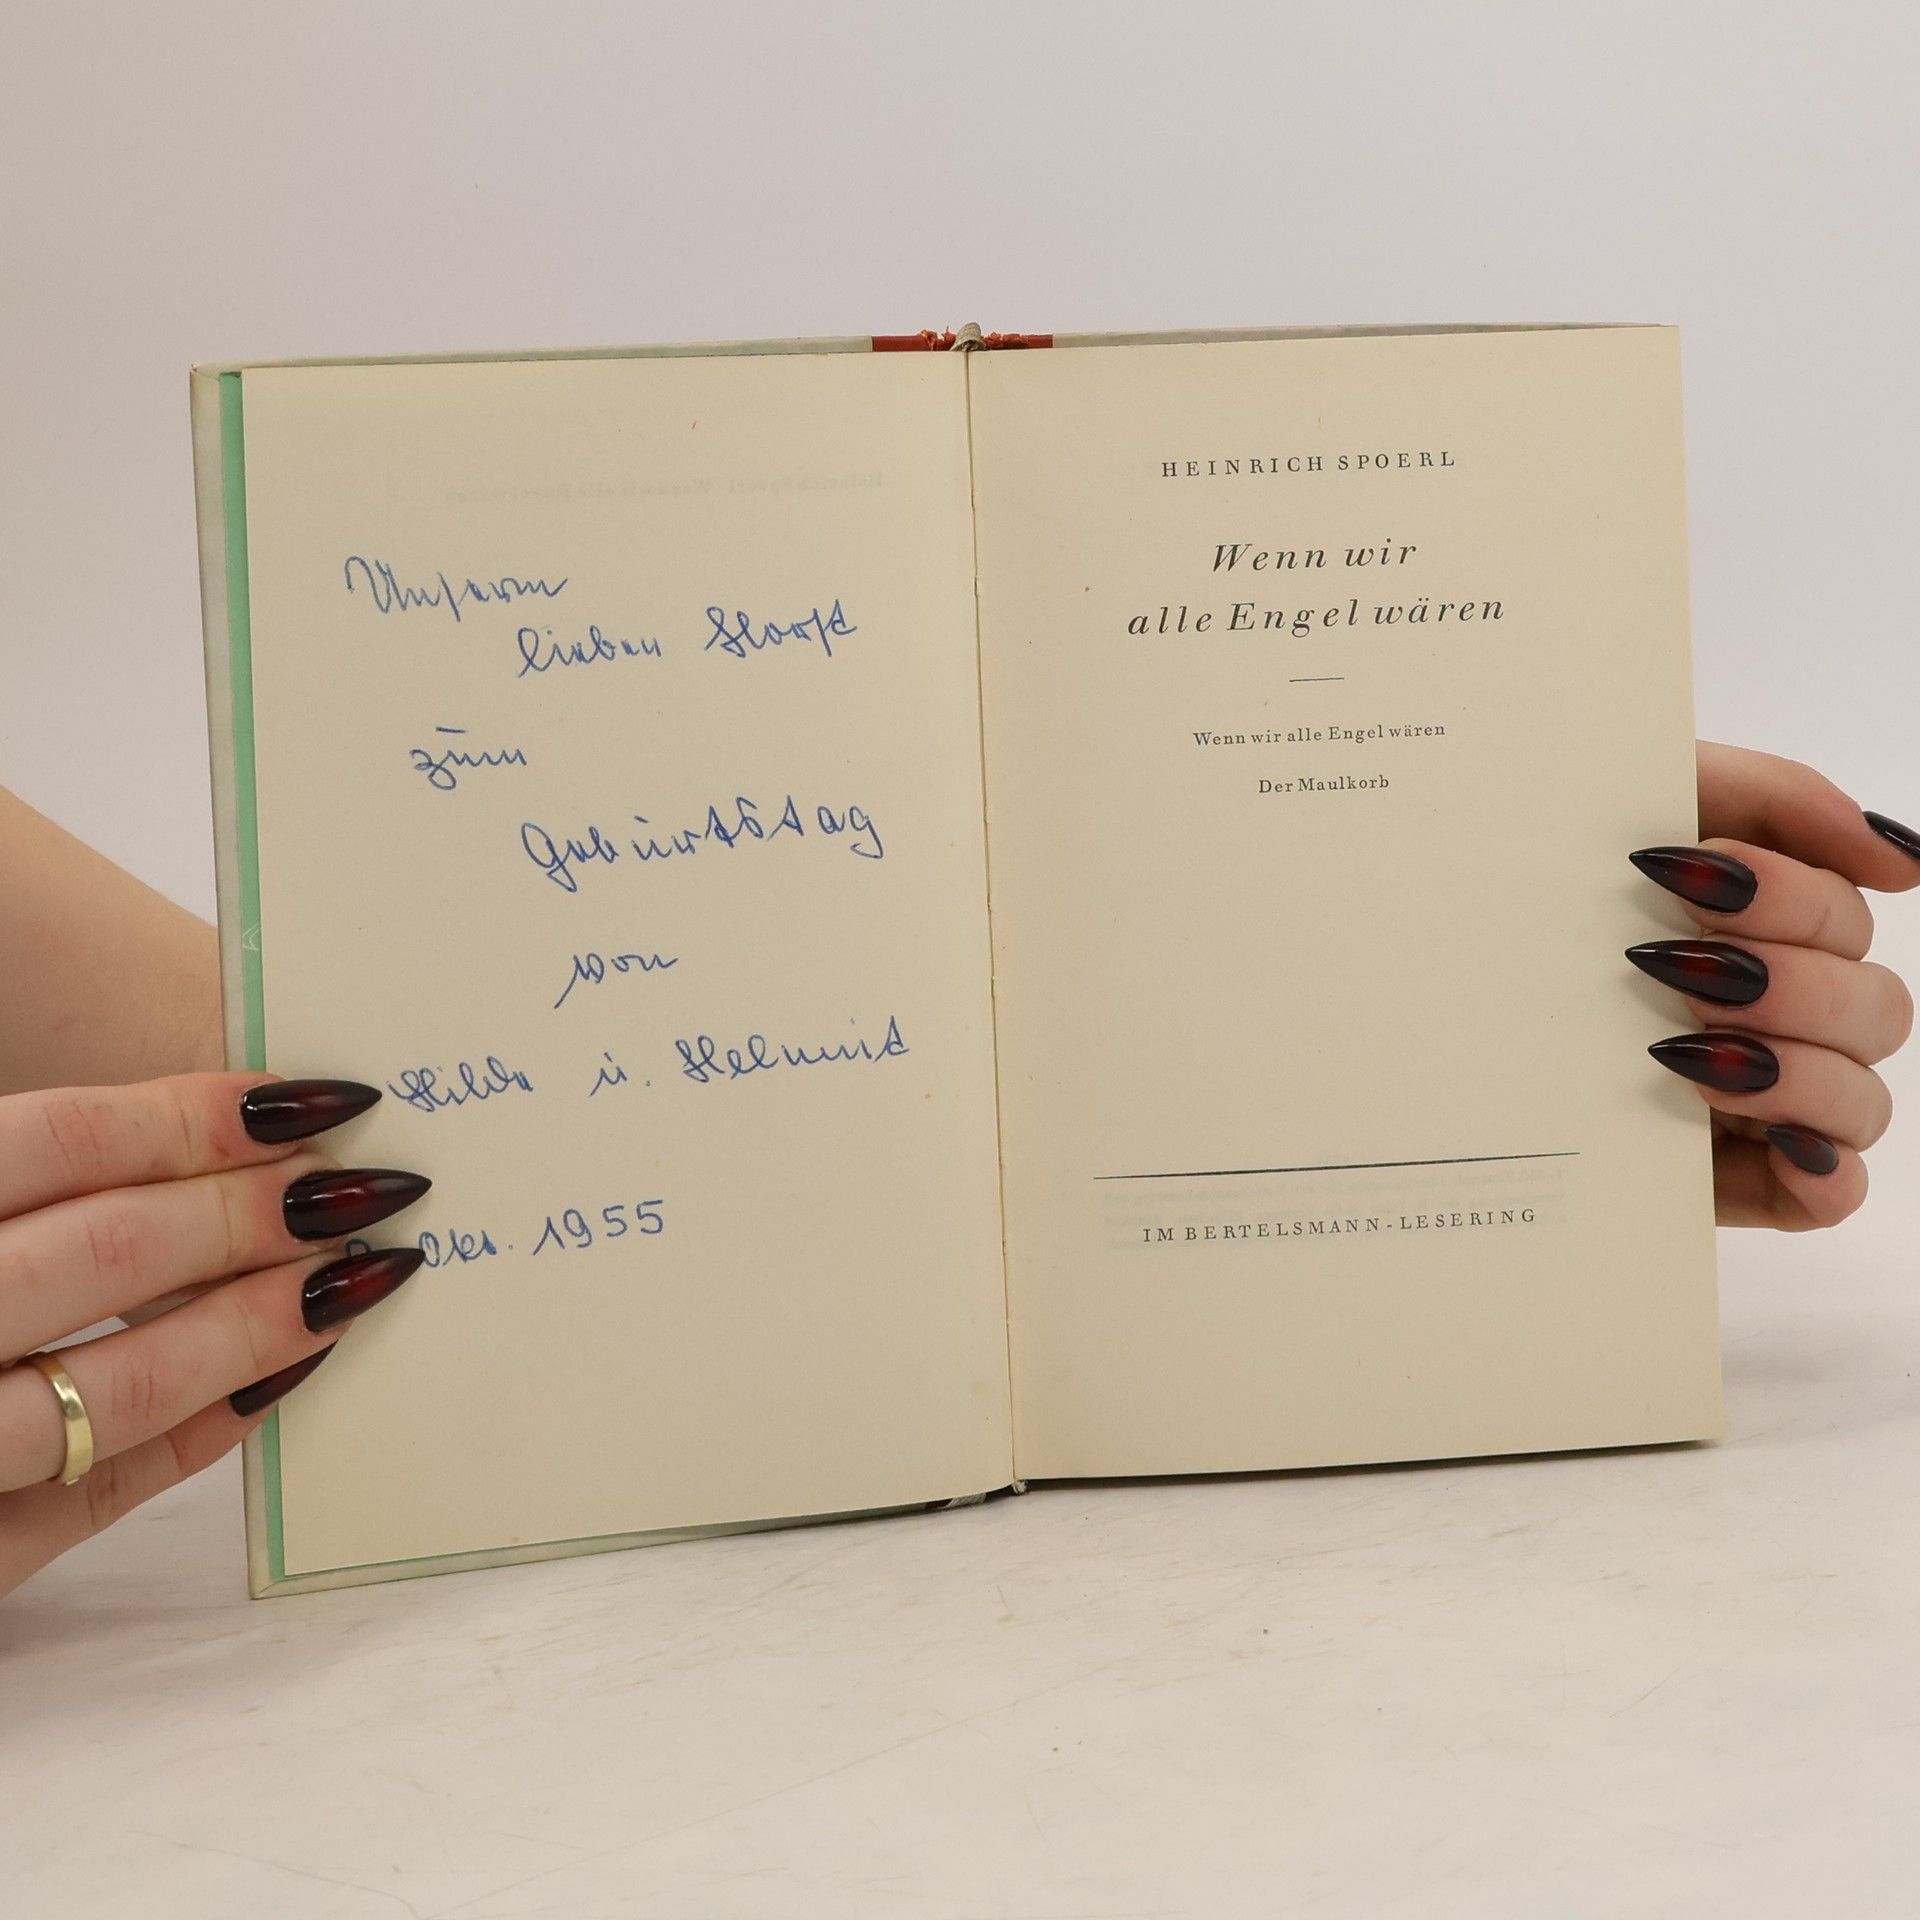 Unserm
lieben Horst
zum
Geburtstag
von
Hilde u. Helmut
Okt. 1955
HEINRICH SPOERL
Wenn wir
alle Engel wären
Wenn wir alle Engel wären
Der Maulkorb
IM BERTELSMANN-LESERING